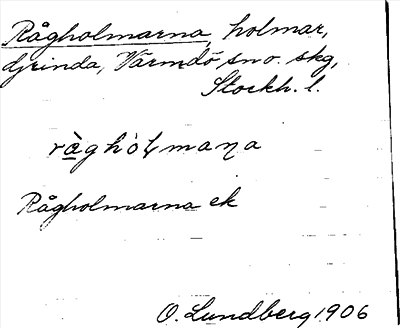 Rågholmarna, holmar,
Djurinda, Värmdö sno. skg,
Stockh. l.
ràghòɫmaƞa
Rågholmarna ek
O. Lundberg 1906